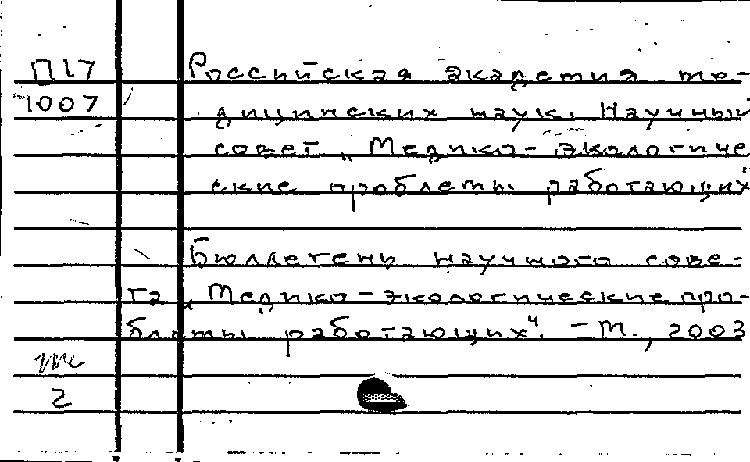 П17 Российская академия ме-
1007 дицинских наук. Научный
совет „Медико-экологиче
ские проблемы работающих"
Бюллетень научного сове-
та „Медико-экологические про-
блемы работающих". - М., 2003
2